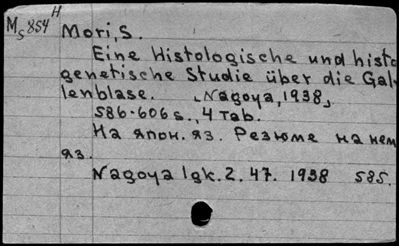 Ms854 H
Mori, S.
Eine Histologische und histo
genetische Studie über die Gal-
lenblase. Nagoya, 1938,
586-606 s., 4 Tab.
На япон. яз. Резюме на нем
яз.
Nagoya Igk. Z. 47. 1938 585.